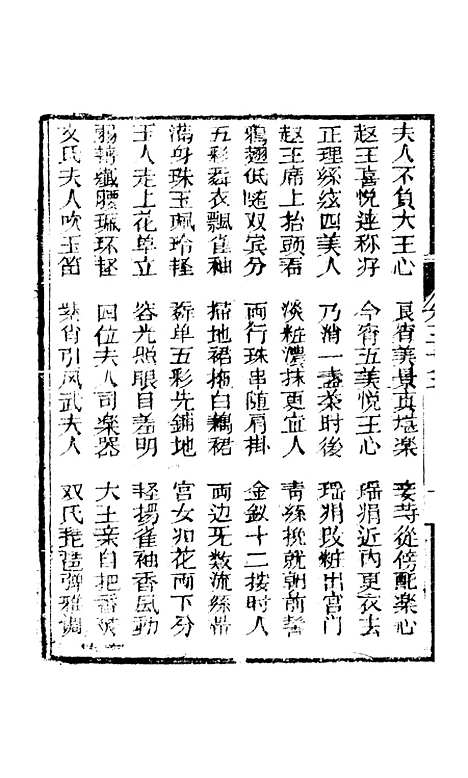 夫人不負大王心 良宵美景真堪楽 妾等從傍配楽心
趙王喜悦連称好 今宵五美悦王心 瑶娟近内更衣去
正理絲絃四美人 乃消一盞茶時後 瑶娟改粧出宮門
趙王席上抬頭看 淡粧濃抹更宜人 青絲挽就朝前髻
鴉翅低随双鬢分 両行珠串随肩掛 金釵十二按时人
五彩舞衣飄雀袖 掃地裙拖白鶴裙 両边牙数流絲帶
满身珠玉珮玲輕 舞单五彩先鋪地 宮女如花両下分
王人走上花单立 容光照眼目差明 輕揚雀袖香風動
弱舞纖腰珮环輕 四位夫人司楽器 大王亲自把香焚
文氏夫人吹玉笛 紫宵引风武夫人 双氏琵琶彈雅調